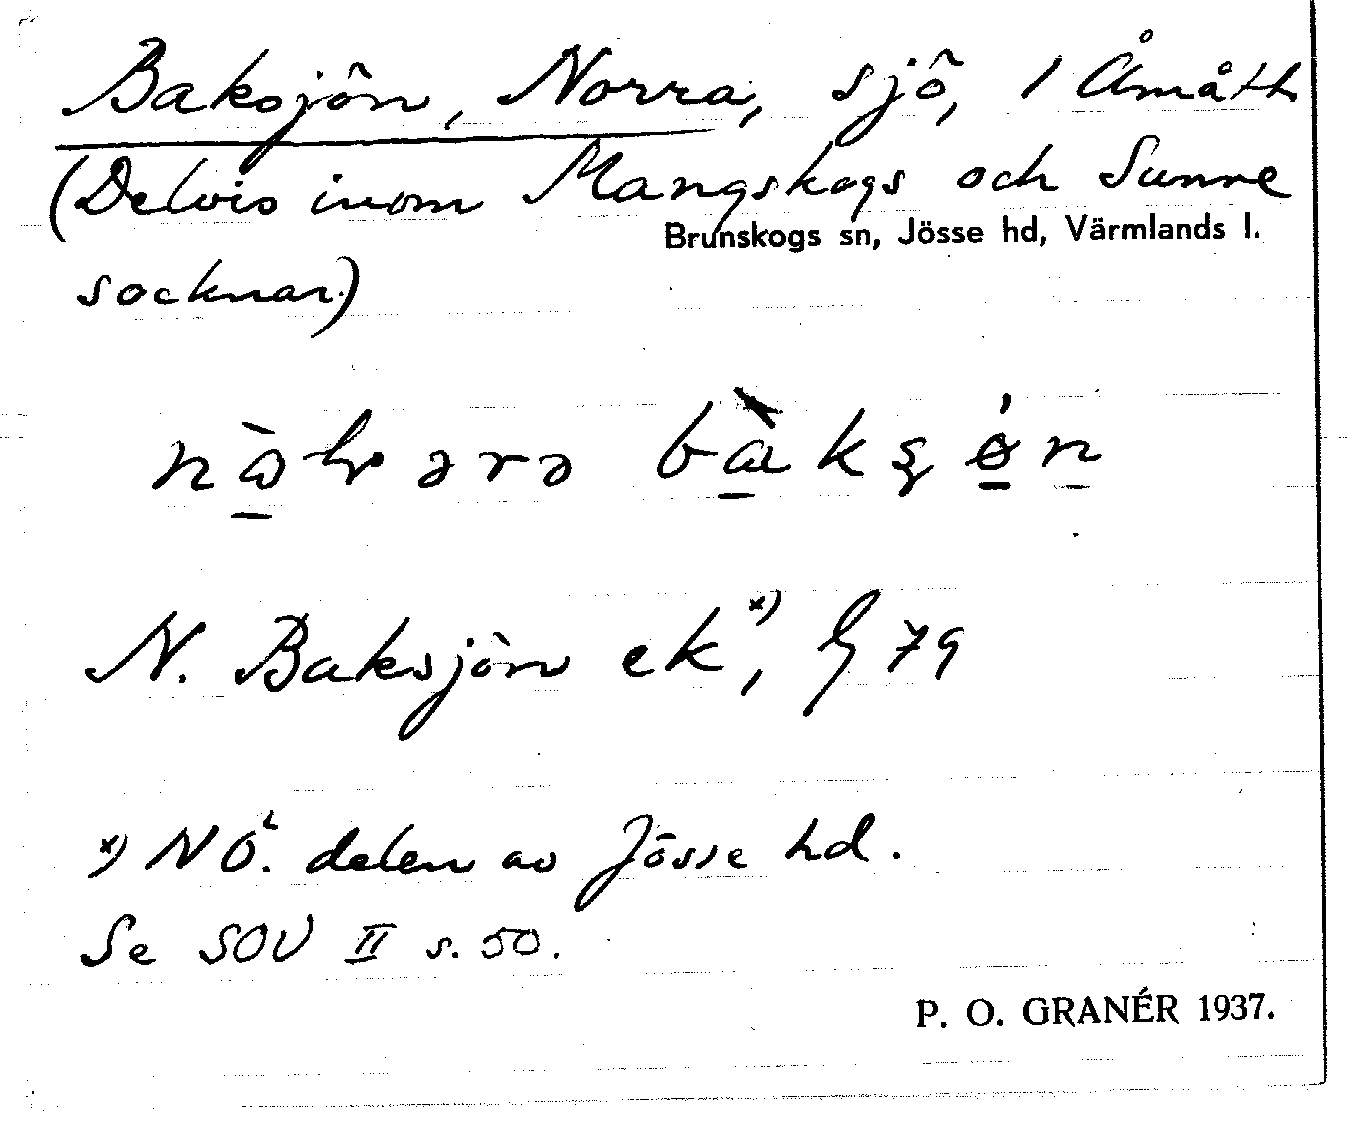 Baksjön, Norra, sjö, 1 Åmåtth
(Delvis inom Mangskogs och Sunne
Brunskogs sn, Jösse hd, Värmlands l.
socknar.)
N. Baksjön ek x), 79
x) NÖ. delen av Jösse hd.
Se SOV II s. 50.
P. O. GRANÉR 1937.